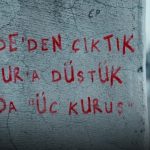 CP
DE'DEN ÇIKTIK
UR'A DÜŞTÜK
DA "ÜÇ KURUŞ"